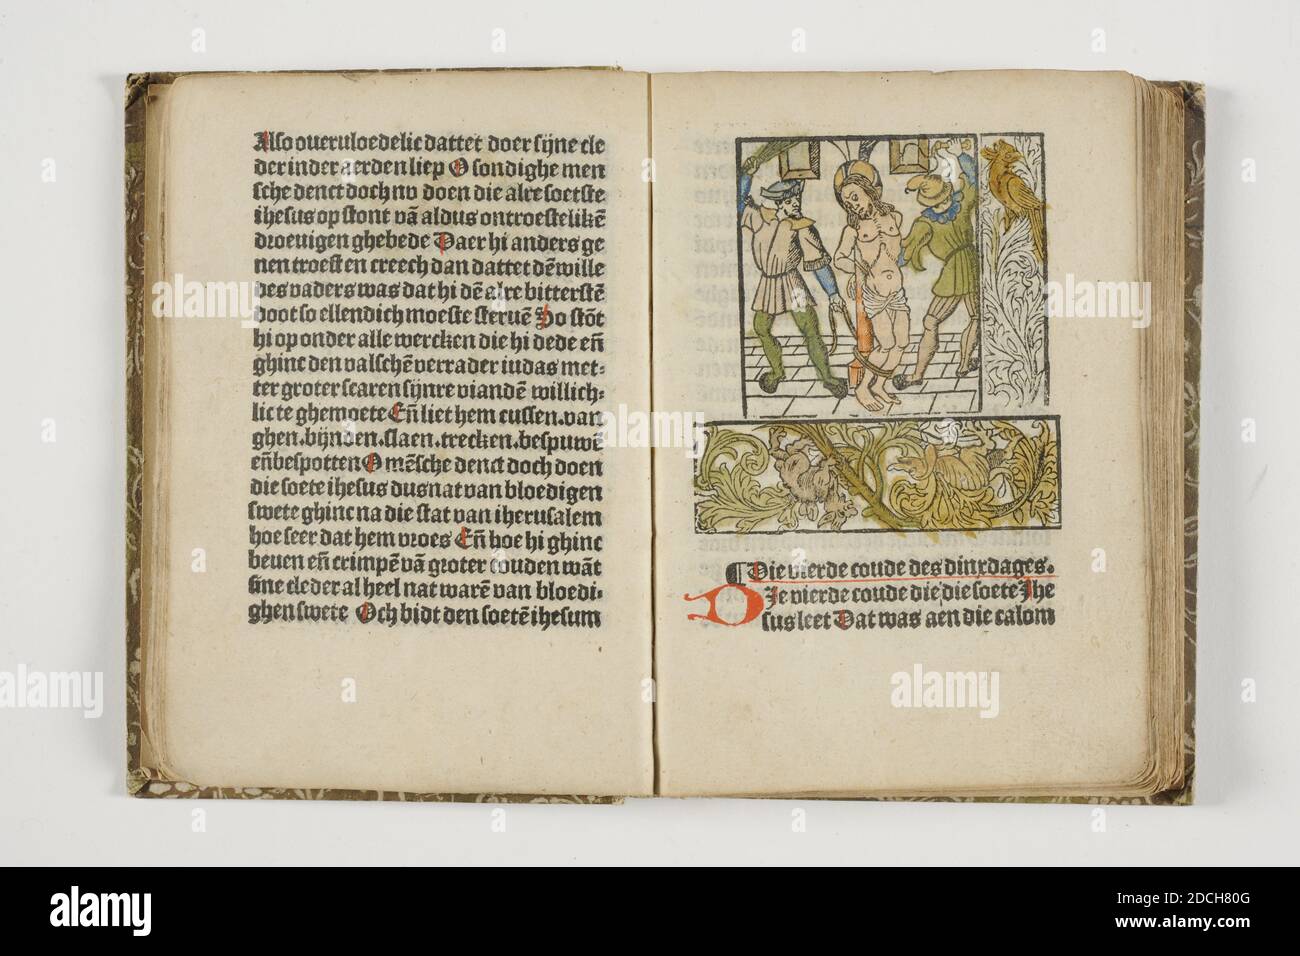 Also oueruloedelic dattet doer sijne cle
der in der aerden liep O sondighe men
sche denct doch nv doen die alre soetste
ihesus op stont vā aldus ontroestelikē
droeuigen ghebede Daer hi anders ge
nen troest en creech dan dattet dē wille
des vaders was dat hi dē alre bitterstē
doot so ellendich moeste steruē Zo stōt
hi op onder alle wercken die hi dede eñ
ghinc den valschē verrader iudas met⸗
ter groter scaren sijnre viandē willich⸗
licte ghemoete Eñ liet hem cussen.van
ghen.bijnden.slaen.trecken.bespuwē
eñ bespotten O mēsche denct doch doen
die soete ihesus dus nat van bloedigen
swete ghinc na die stat van iherusalem
hoe seer dat hem vroes Eñ hoe hi ghinc
beuen eñ crimpē vā groter couden wāt
sine cleder al heel nat warē van bloedi⸗
ghen swete Och bidt den soetē ihesum
¶ Die vierde coude des dinxdages.
DJe vierde coude die die soete Jhe
sus leet Dat was aen die calom
alamy
Image ID: 2DCH80G
www.alamy.com